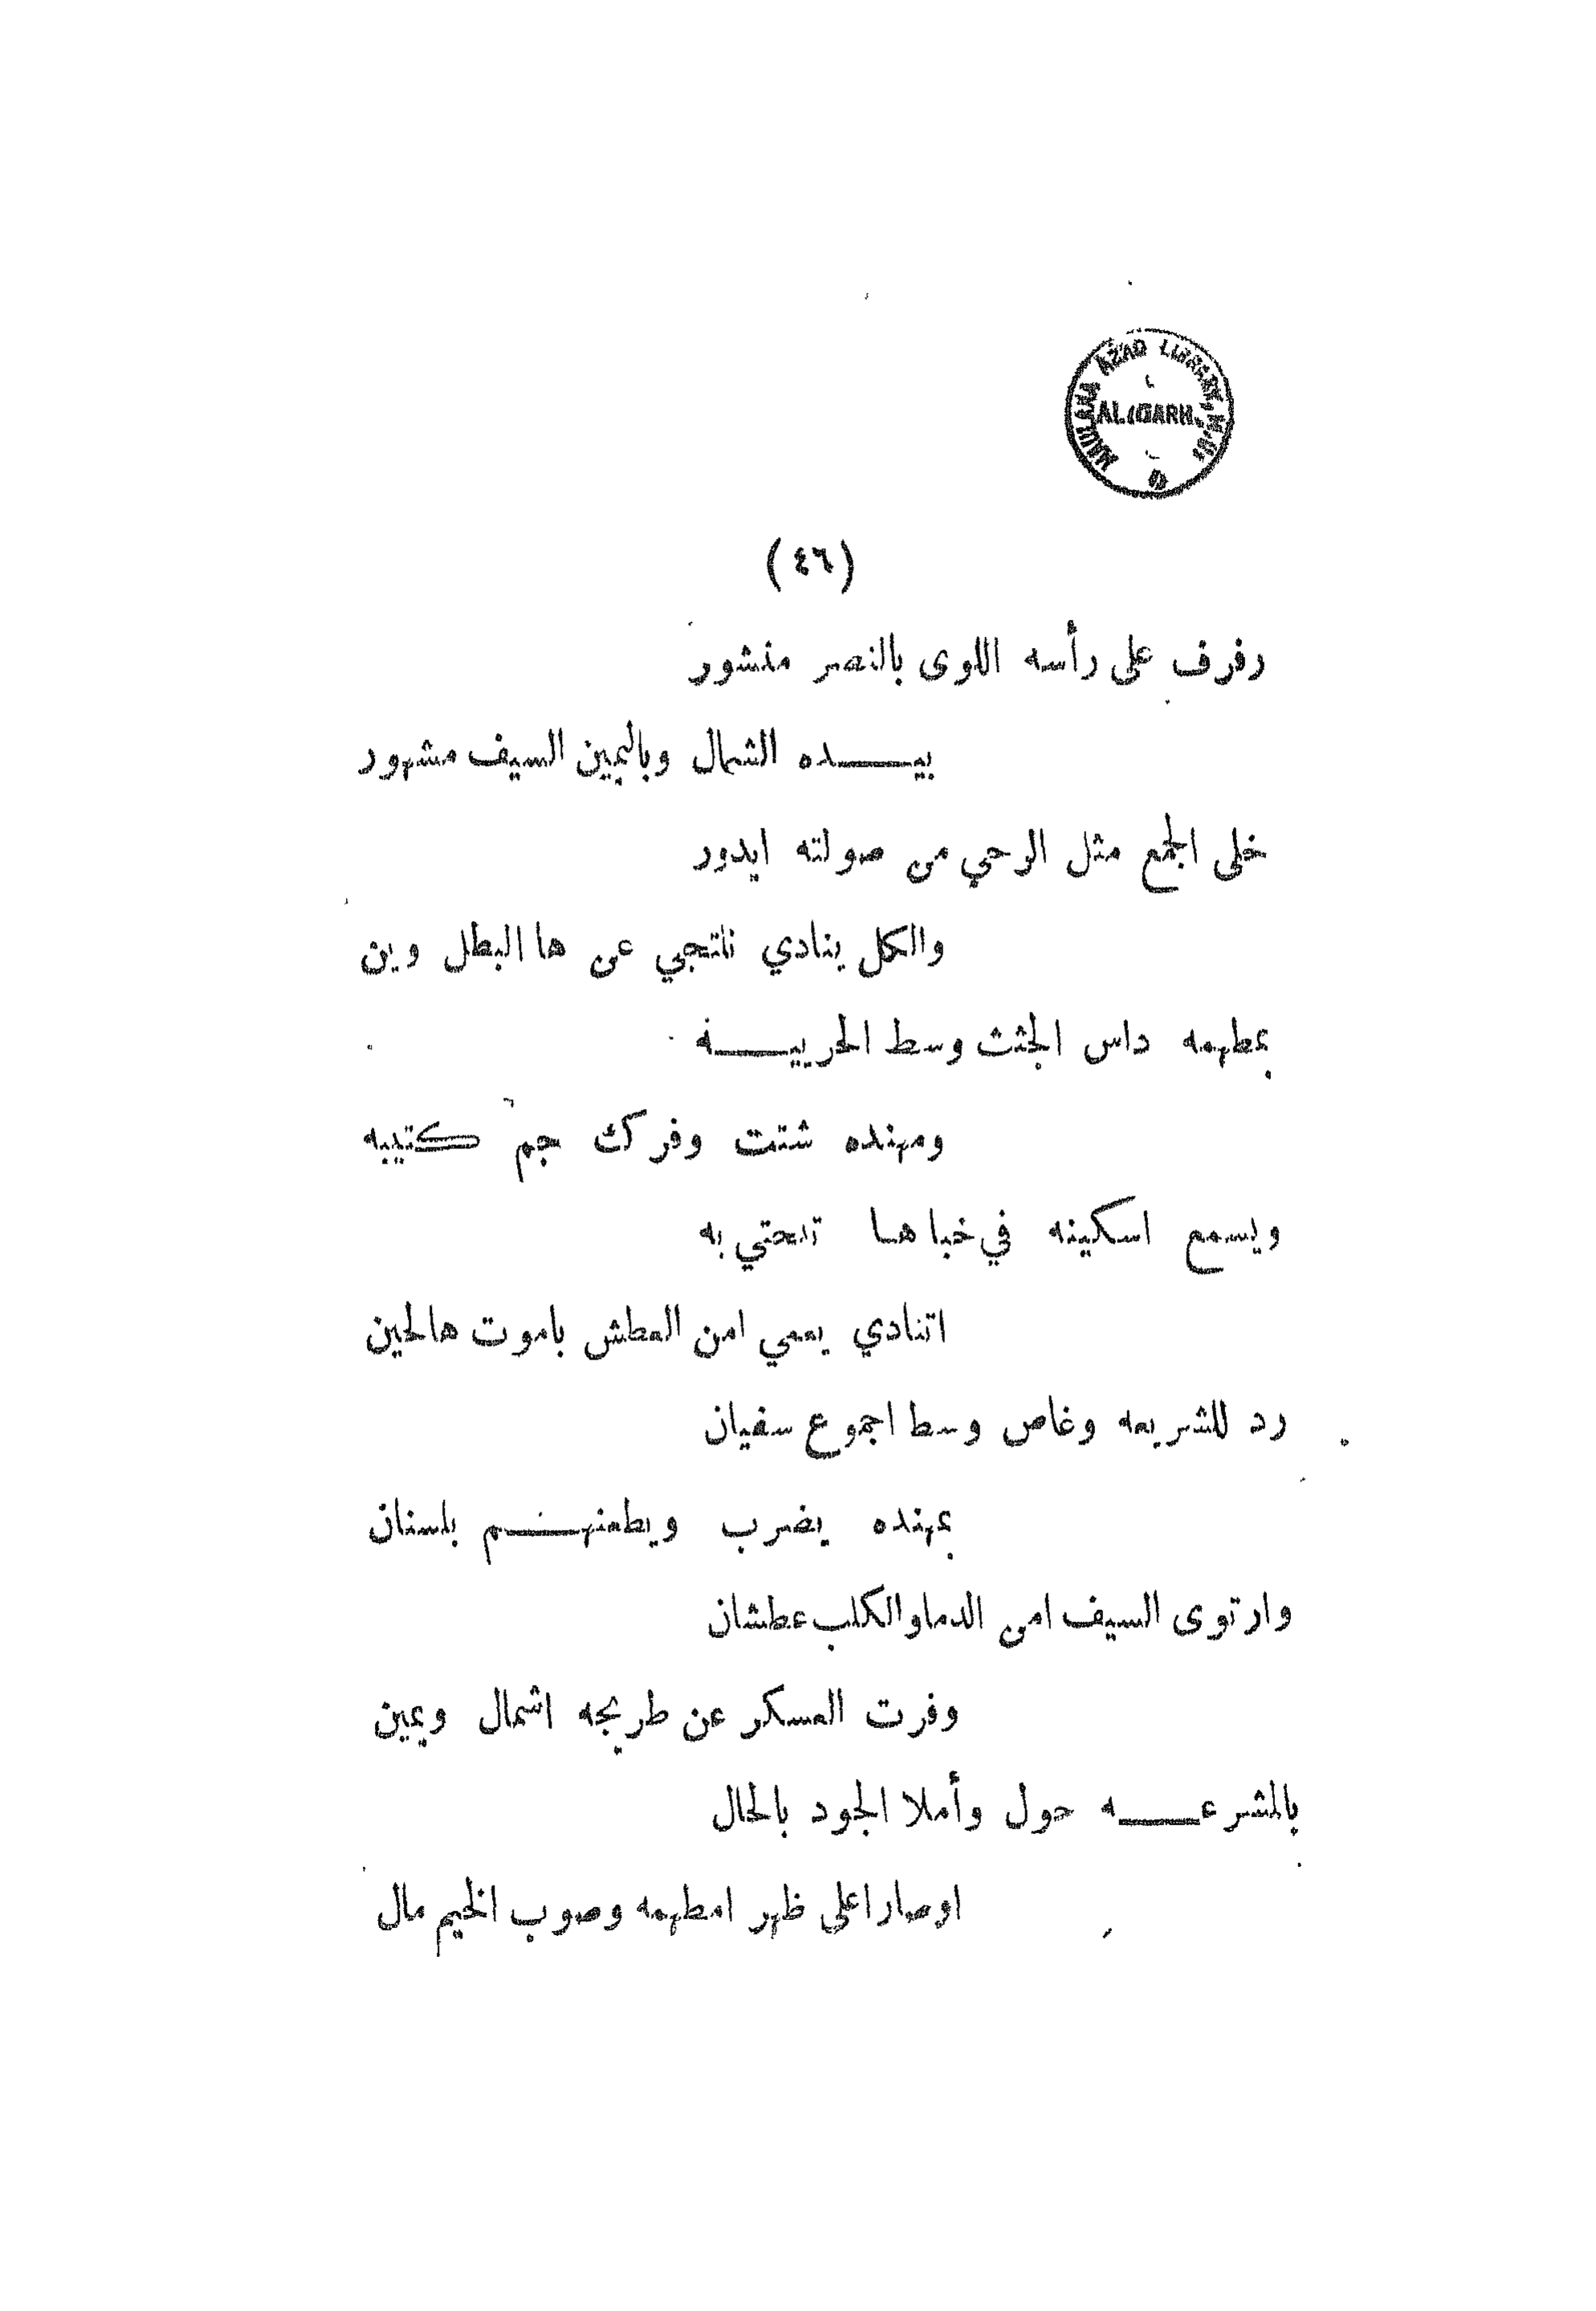 MAULANA AZAD LIBRARY, A.M.U.
ALIGARH.
(٤٦)
رفرف على رأسه اللوى بالنصر منشور
بيـــده الشمال وباليمين السيف مشهور
خلى الجمع مثل الرحي من صولته ايدور
والكل ينادي نلتجي عن ها البطل وين
بمطهمه داس الجثث وسط الحريبـــة
ومهنده شتت وفرك جم كتيبه
ويسمع اسكينه في خباها تنحتي به
اتنادي يعمي امن العطش باموت هالحين
رد للشريعه وغاص وسط اجموع سفيان
بمهنده يضرب ويطعنهـــم بلسنان
وارتوى السيف امن الدما والكلب عطشان
وفرت العسكر عن طريجه اشمال ويمين
بالمشرعـــه حول وأملا الجود بالحال
اوصار اعلى ظهر امطهمه وصوب الخيم مال